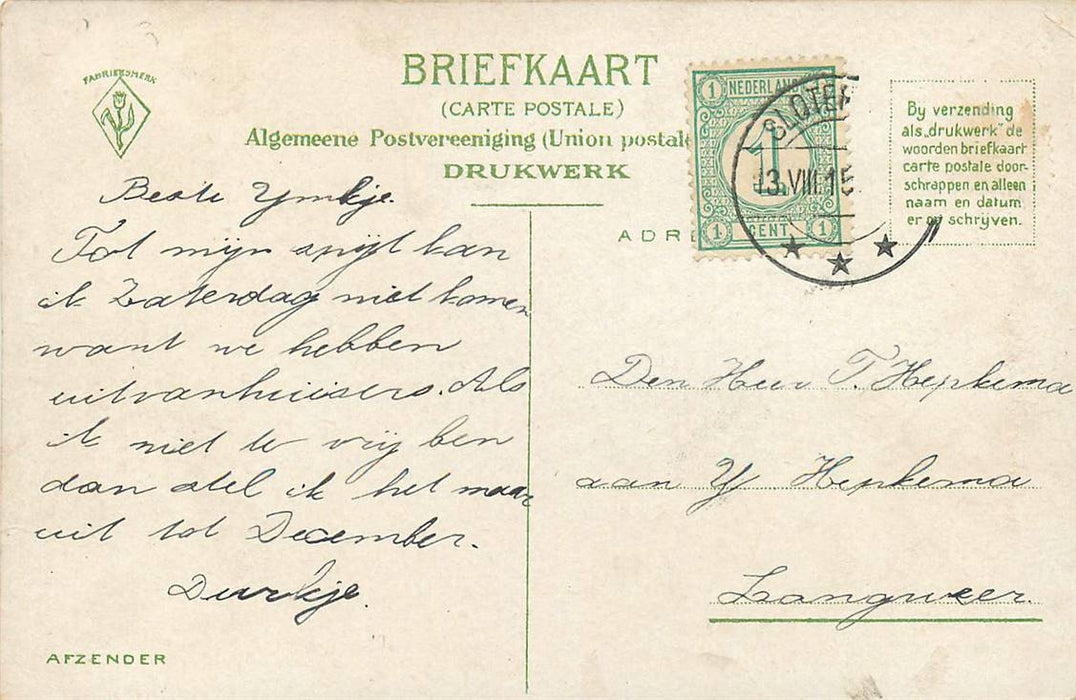 FABRIEKSMERK
BRIEFKAART
(CARTE POSTALE)
Algemeene Postvereeniging (Union postale
DRUKWERK
1 NEDERLAND
1
1 CENT 1
SLOTE
13.VIII.15
By verzending
als „drukwerk" de
woorden briefkaart
carte postale door-
schrappen en alleen
naam en datum
er op schrijven.
ADR
Beste Ymkje.
Tot mijn spijt kan
ik Zaterdag niet komen
want we hebben
uitvanhuisers. Als
ik niet te vrij ben
dan stel ik het maar
uit tot December.
Durkje.
Den Heer T. Hepkema
aan Y Hepkema
Langweer.
AFZENDER